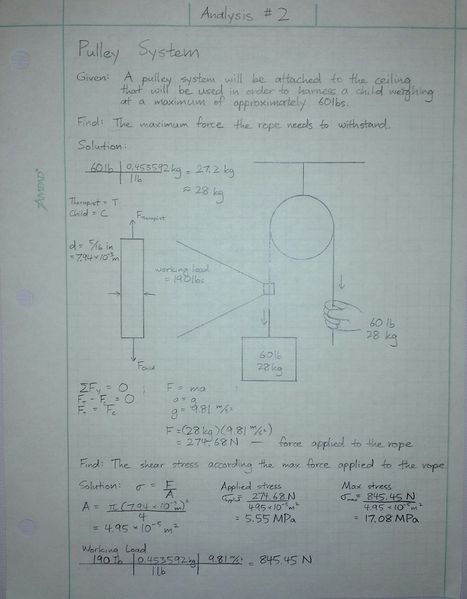 Analysis #2
Pulley System
Given: A pulley system will be attached to the ceiling
that will be used in order to harness a child weighing
at a maximum of approximately 60lbs.
Find: The maximum force the rope needs to withstand.
Solution:
60 lb | 0.453592 kg = 27.2 kg
1 lb
≈ 28 kg
Therapist = T
Child = C
F Therapist
d = 5/16 in
= 7.94×10⁻³ m
working load
= 190 lbs
60 lb
28 kg
60 lb
28 kg
F Child
ΣFy = 0 ;
F = ma
FT - FC = 0
a = g
FT = FC
g = 9.81 m/s²
F = (28 kg)(9.81 m/s²)
= 274.68 N — force applied to the rope
Find: The shear stress according the max force applied to the rope
Solution: σ = F/A
Applied stress
Max stress
A = π(7.94×10⁻³m)²/4
σapplied = 274.68 N / 4.95×10⁻⁵ m²
σmax = 845.45 N / 4.95×10⁻⁵ m²
= 4.95×10⁻⁵ m²
= 5.55 MPa
= 17.08 MPa
Working Load
190 lb | 0.453592 kg | 9.81 m/s² = 845.45 N
1 lb